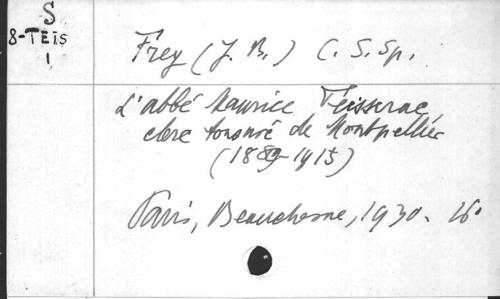 S
8-TEIS
1
Frey (J. B.) C. S. Sp.
L'abbé Maurice Teisserac
clerc tonsuré de Montpellier
(1889-1915)
Paris, Beauchesne, 1930. 16°